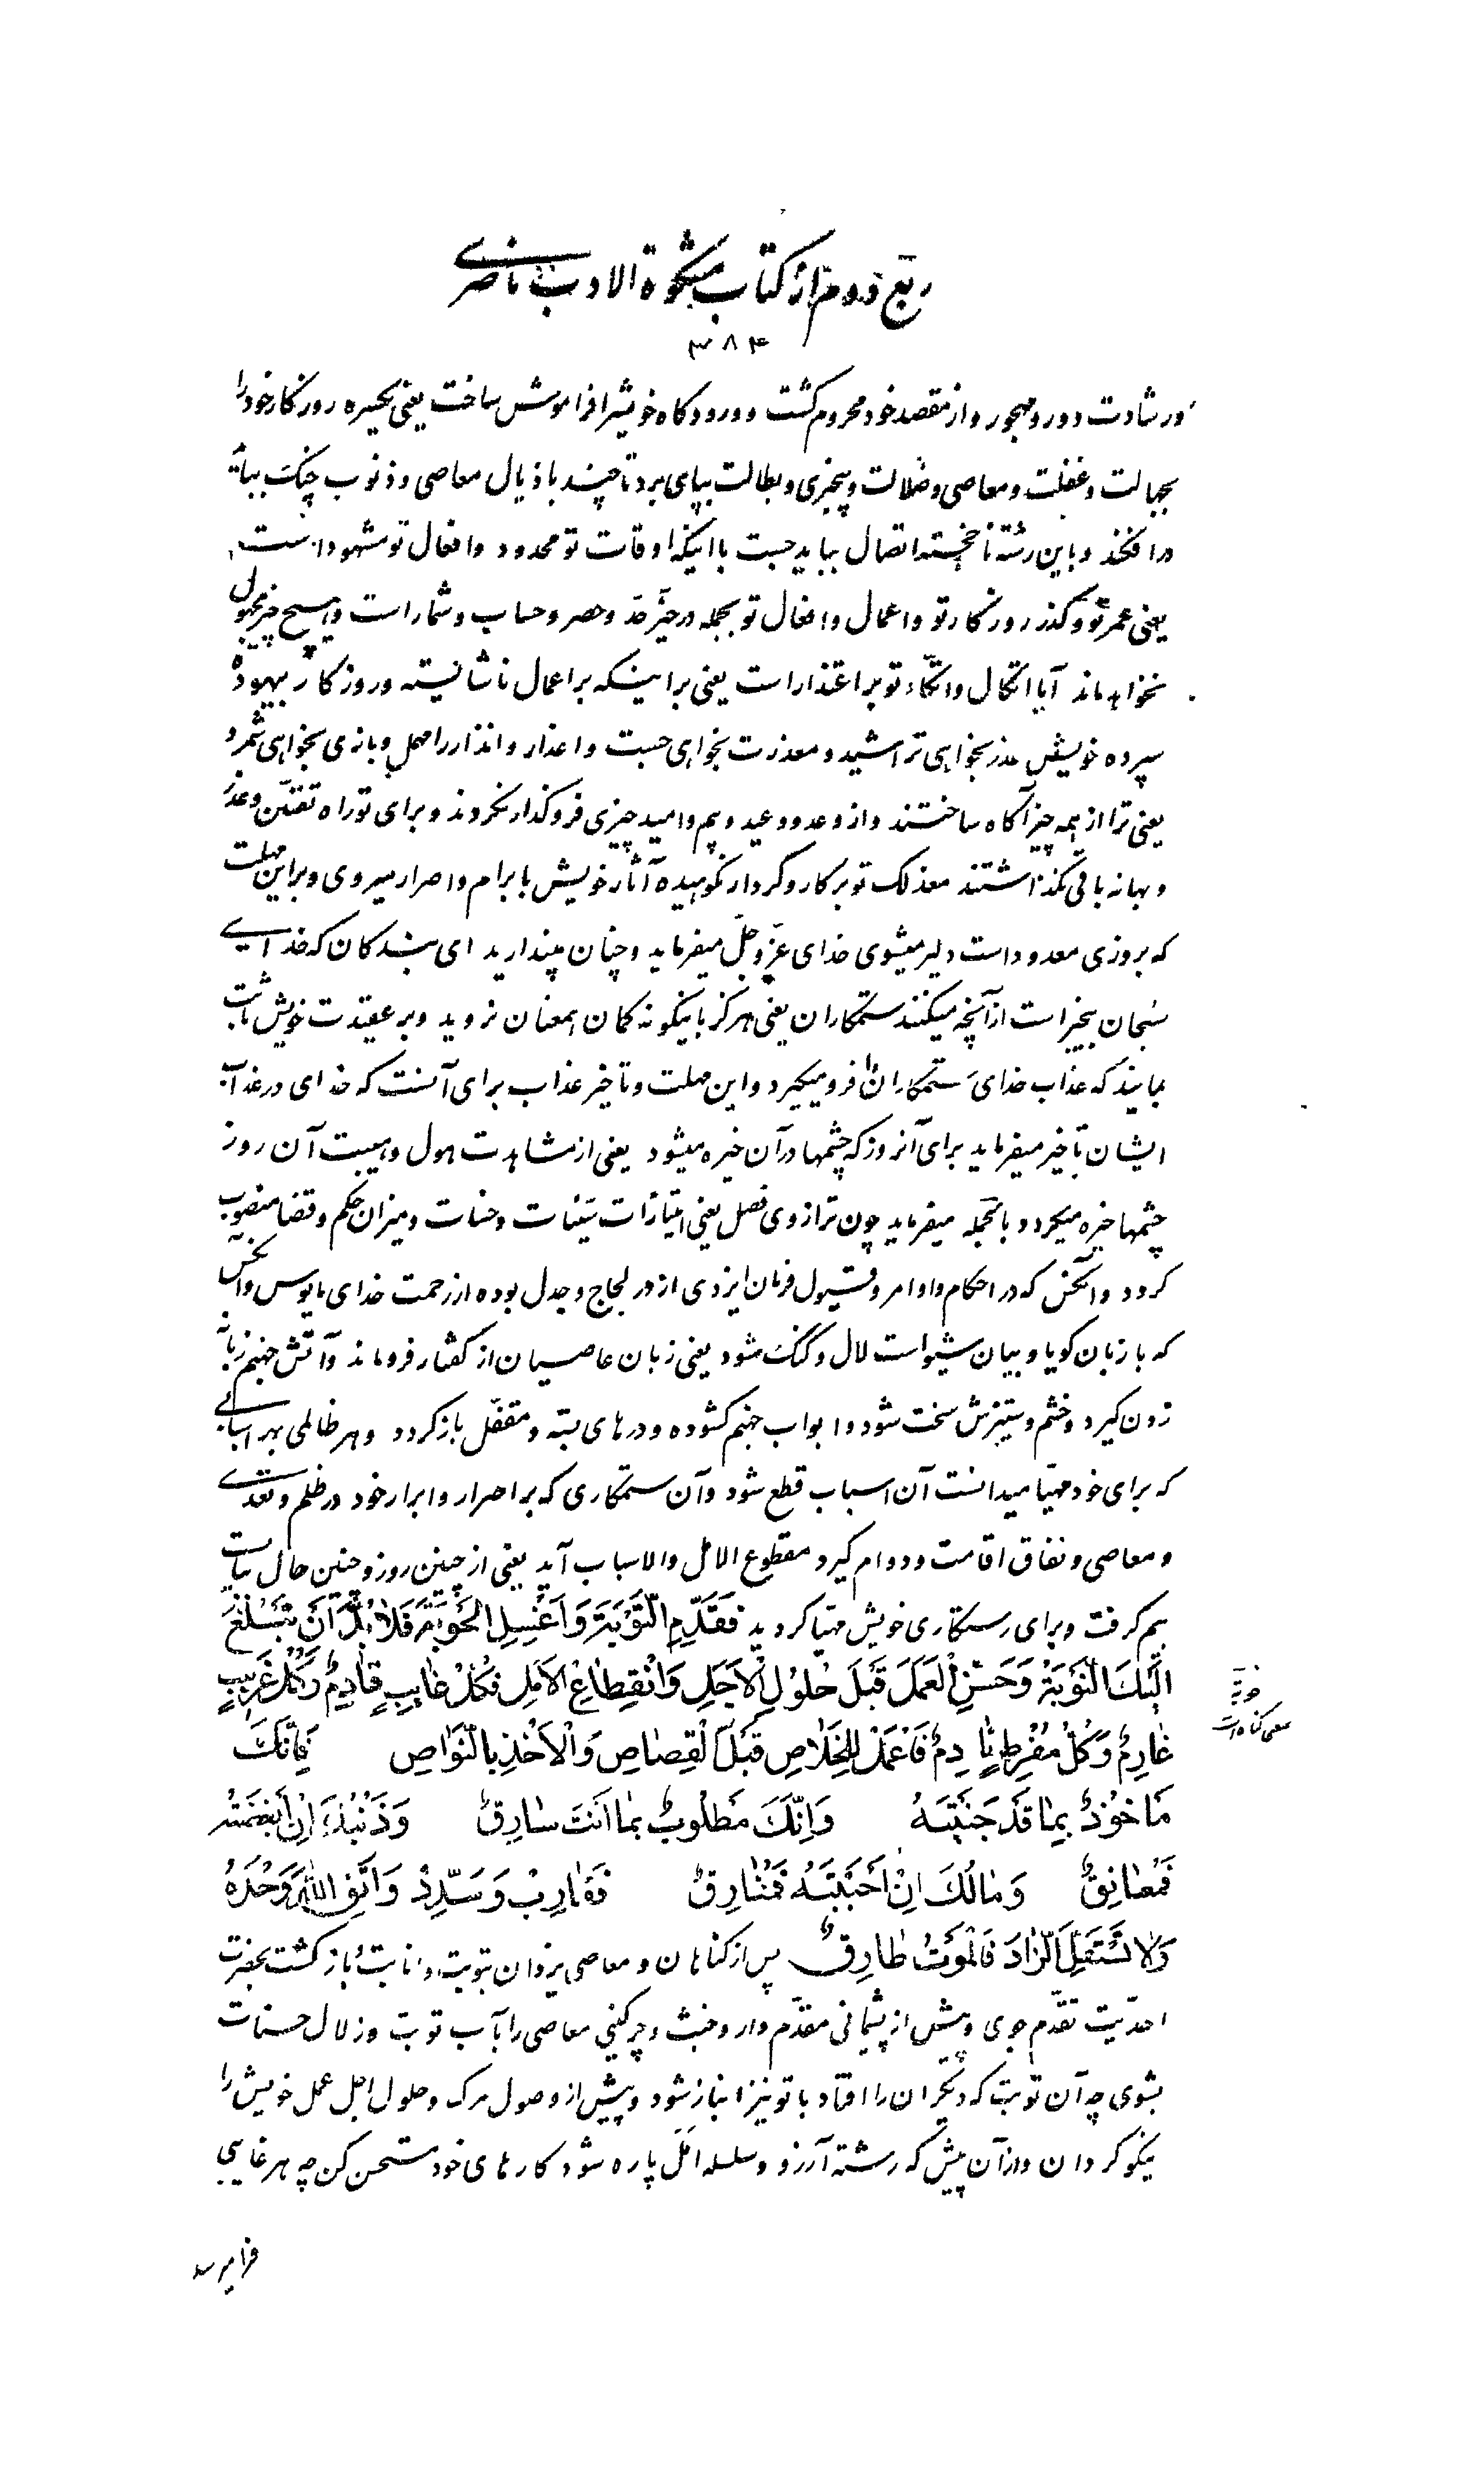 ربع دوم از کتاب مشکوة الادب ناصری
۳۸۴
ور شادت دور و مهجور و از مقصد خود محروم گشت و ورودگاه خویشرا فراموش ساخت یعنی یکسره روزگار خود را
بجهالت و غفلت و معاصی و ضلالت و بیخبری و بطالت بپای برد تا چند باذیال معاصی و ذنوب چنگ بباید
درافکند و باین رشته ناخجسته اتصال بباید جست با اینکه اوقات تو محدود و افعال تو مشهود است
یعنی عمر تو و گذر روزگار تو و اعمال و افعال تو بجمله در حیّز حدّ و حصر و حساب و شمار است و هیچ چیز مجهول
نخواهد ماند آیا اتکال و اتکاء تو بر اعتذار است یعنی بر اینکه بر اعمال ناشایسته و روزگار بیهوده
سپرده خویش عذر بخواهی تراشید و معذرت بخواهی جست و اعذار و انذار را مهمل و بازی بخواهی شمرد
یعنی ترا از همه چیز آگاه ساختند و از وعد و وعید و بیم و امید چیزی فروگذار نکردند و برای تو راه تفنّن و عذر
و بهانه باقی نگذاشتند معذلک تو بر کار و کردار نکوهیده آثار خویش بابرام و اصرار میروی و براین مهلت
که بروزی معدود است دلیر میشوی خدای عزّ و جلّ میفرماید و چنان مپندارید ای بندگان که خدای
سبحان بیخبر است از آنچه میکنند ستمکاران یعنی هرگز باینگونه گمان همعنان نروید و بر عقیدت خویش ثابت
بمانید که عذاب خدای ستمکاران را فرو میگیرد و این مهلت و تاخیر عذاب برای آنست که خدای در عذاب
ایشان تأخیر میفرماید برای آنروز که چشمها در آن خیره میشود یعنی از مشاهدت هول و هیبت آن روز
چشمها خیره میگردد بالجمله میفرماید چون ترازوی فصل یعنی امتیازات سیّئات و حسنات و میزان حکم و قضا منصوب
گردد و آنکس که در احکام و اوامر و قبول فرمان ایزدی از در لجاج و جدل بوده از رحمت خدای مایوس و آنکس
که با زبان گویا و بیان شیوا است لال و گنگ شود یعنی زبان عاصیان از گفتار فروماند و آتش جهنم زبانه
زدن گیرد و خشم و ستیزش سخت شود و ابواب جهنم گشوده و درهای بسته و مقفّل باز گردد و هر ظالمی بهر اسبابی
که برای خود مهیّا میدانست آن اسباب قطع شود و آن ستمکاری که بر احرار و ابرار خود در ظلم و تعدی
و معاصی و نفاق اقامت و دوام گیرد مقطوع الامل و الاسباب آید یعنی از چنین روز و چنین حال ببایست
بیم گرفت و برای رستگاری خویش مهیّا گردید فَقَدِّمِ التَّوْبَةَ وَاَغْسِلِ الْحَوْبَةَ فَلاٰ بُدَّ اَنْ تَبْلُغَ
اِلَیْكَ النَّوْبَةُ وَحَسِّنِ الْعَمَلَ قَبْلَ حُلُولِ الْاَجَلِ وَانْقِطاعِ الْاَمَلِ فَکُلُّ غائِبٍ قادِمٌ وَکُلُّ غَریبٍ
غارِمٌ وَکُلُّ مُفْرِطٍ نادِمٌ فَاعْمَلْ لِلْخَلاصِ قَبْلَ الْقِصاصِ وَالْاَخْذِ بِالنَّواصِ فَاِنَّكَ
مَاْخُوذٌ بِما قَدْ جَنَیْتَهُ وَاِنَّكَ مَطْلُوبٌ بِما اَنْتَ سارِقٌ وَذَنْبُكَ اِنْ اَبْغَضْتَهُ
فَمُعانِقٌ وَمالُكَ اِنْ اَحْبَبْتَهُ فَمُفارِقٌ فَقارِبْ وَسَدِّدْ وَاتَّقِ اللهَ وَحْدَهُ
وَلا تَسْتَقِلَّ الزّادَ فَالْمَوْتُ طارِقٌ پس از گناهان و معاصی یزدان بتوبت و انابت و بازگشت بحضرت
احدیّت تقدّم جوی و پیش از پشیمانی مقدّم دار و خبث و چرگینی معاصی را بآب توبت و زلال حسنات
بشوی چه آن نوبت که دیگران را افتاد با تو نیز انباز شود و پیش از وصول مرگ و حلول اجل عمل خویش را
نیکو گردان و از آن پیش که رشته آرزو و سلسله امل پاره شود کارهای خود مستحسن کن چه هر غایبی
حوبة
بمعنی گناه است
فرامیرسد